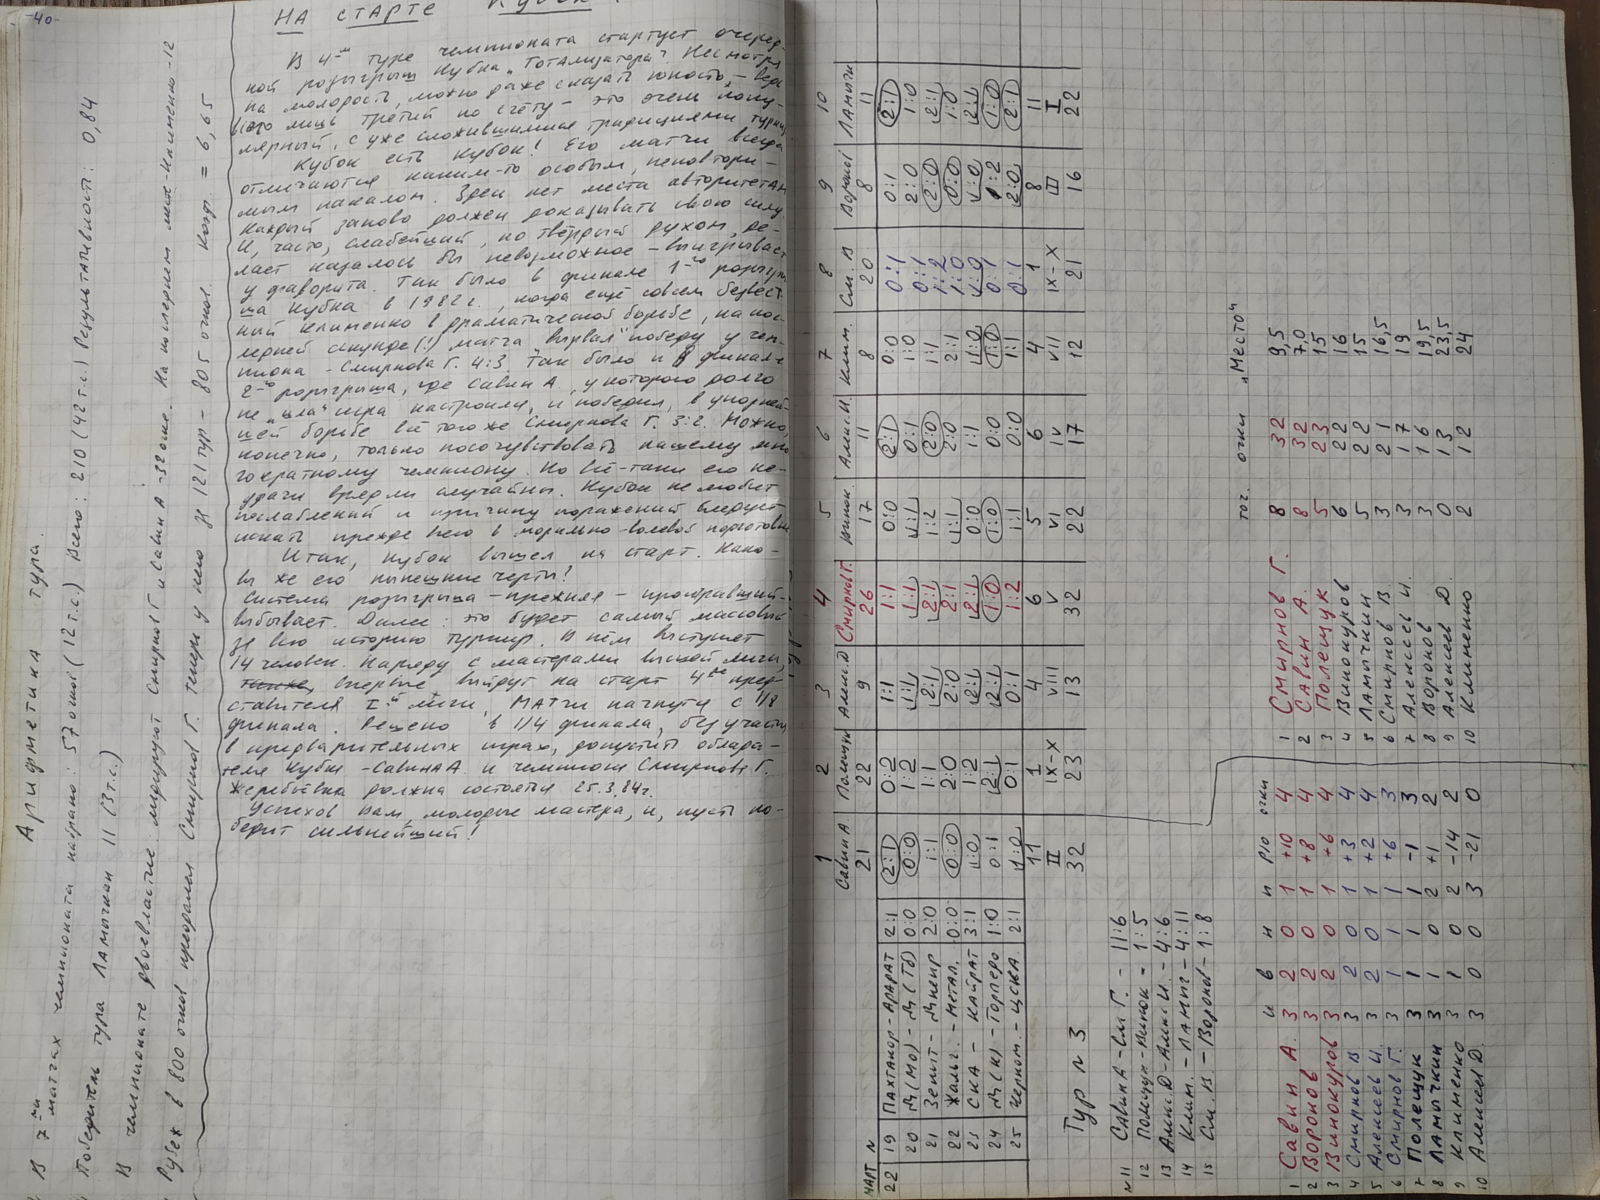 -40-
Арифметика тура.
В 7-ми матчах чемпионата набрано: 57 очков (12 т.с.) Всего: 210 (42 т.с.) Результативность: 0,84
Победитель тура Ламычкин 11 (3 т.с.)
В чемпионате двоевластие: лидируют Смирнов Г и Савин А - 32 очка. На последнем месте Клименко - 12
Рубеж в 800 очков преодолел Смирнов Г. Теперь у него за 121 тур - 805 очков. Коэф. = 6,65
НА СТАРТЕ Кубок
В 4-м туре чемпионата стартует очеред-
ной розыгрыш Кубка "Тотализатора". Несмотря
на молодость, можно даже сказать юность, - ведь
всего лишь третий по счёту - это очень попу-
лярный, с уже сложившимися традициями турнир
Кубок есть Кубок! Его матчи всегда
отличаются каким-то особым, неповтори-
мым накалом. Здесь нет места авторитетам
каждый заново должен доказывать свою силу
И, часто, слабейший, но твёрдый духом, де-
лает казалось бы невозможное - выигрывает
у фаворита. Так было в финале 1-го розыгры
ша Кубка в 1982 г., когда ещё совсем безвест-
ный Клименко в драматической борьбе, на пос-
ледней секунде (!) матча "вырвал" победу у чем-
пиона - Смирнова Г. 4:3. Так было и в финале
2-го розыгрыша, где Савин А, у которого долго
не "шла" игра настроился, и победил, в упорней-
шей борьбе всё того же Смирнова Г. 3:2. Можно,
конечно, только посочувствовать нашему мно
гократному чемпиону. Но всё-таки его не-
удачи вряд ли случайны. Кубок не любит
послаблений и причину поражений следует
искать прежде всего в морально-волевой подготовке
Итак, Кубок вышел на старт. Како-
вы же его нынешние черты?
Система розыгрыша - прежняя - проигравший-
выбывает. Далее: это будет самый массовый
за всю историю турнир. В нём выступят
14 человек. Наряду с мастерами высшей лиги,
впервые выйдут на старт 4-ре пред-
ставителя I-й лиги. Матчи начнутся с 1/8
финала. Решено, в 1/4 финала, без участия
в предварительных играх, допустить облада-
теля Кубка - Савина А и чемпиона Смирнова Г.
Жеребьёвка должна состоятся 25.3.84 г.
Успехов вам, молодые мастера, и, пусть по-
бедит сильнейший!
1 2 3 4 5 6 7 8 9 10
МАРТ N Савин А. Полещук Алекс.Д Смирнов Г. Винок. Алекс.И. Клим. См. В Воронов Ламычк
21 22 9 26 17 11 8 20 8 11
22 19 ПАХТАКОР - АРАРАТ 2:1 2:1 0:2 1:1 1:1 0:0 2:1 0:0 0:1 0:1 2:1
20 Д(Мо) - Д(Тб) 0:0 0:0 1:2 1:1 1:1 1:1 0:1 1:0 0:1 2:0 1:0
21 Зенит - Днепр 2:0 1:1 1:1 2:1 2:1 1:2 2:0 1:1 1:2 2:0 2:1
22 Жальг. - Метал. 0:0 0:0 2:0 2:0 2:1 1:1 2:0 2:1 1:0 0:0 1:0
23 СКА - КАЙРАТ 3:1 1:0 1:2 2:1 2:1 0:0 1:1 1:0 1:0 1:0 2:1
24 Д(К) - Торпедо 1:0 0:1 2:1 2:1 1:0 1:0 0:0 1:0 0:1 1:2 1:0
25 Черном. - ЦСКА 2:1 1:0 0:1 0:1 1:2 1:1 0:0 1:1 0:1 2:0 2:1
11 1 4 6 5 6 4 1 8 11
Тур N 3 II IX-X VIII V VI IV VII IX-X III I
32 23 13 32 22 17 12 21 16 22
N11 Савин А - См Г. - 11:6
12 Полещук - Винок - 1:5
13 Алекс Д - Алекс И. - 4:6
14 Клим. - Ламыч - 4:11
15 См. В - Воронов - 1:8
и в н п р/о очки
1 Савин А. 3 2 0 1 +10 4
2 Воронов 3 2 0 1 +8 4
3 Винокуров 3 2 0 1 +6 4
4 Смирнов В 3 2 0 1 +3 4
5 Алексеев И. 3 2 0 1 +2 4
6 Смирнов Г. 3 1 1 1 +6 3
7 Полещук 3 1 1 1 -1 3
8 Ламычкин 3 1 0 2 +1 2
9 Клименко 3 1 0 2 -14 2
10 Алексеев Д. 3 0 0 3 -21 0
точ. очки "Место"
1 Смирнов Г. 8 32 9,5
2 Савин А. 8 32 7,0
3 Полещук 5 23 15
4 Винокуров 6 22 16
5 Ламычкин 5 22 15
6 Смирнов В. 3 21 16,5
7 Алексеев И. 3 17 19
8 Воронов 3 16 19,5
9 Алексеев Д. 0 13 23,5
10 Клименко 2 12 24